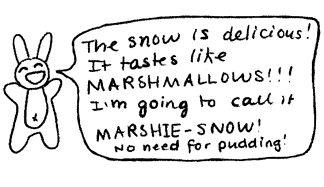 The snow is delicious!
It tastes like
MARSHMALLOWS!!!
I'm going to call it
MARSHIE-SNOW!
No need for pudding!